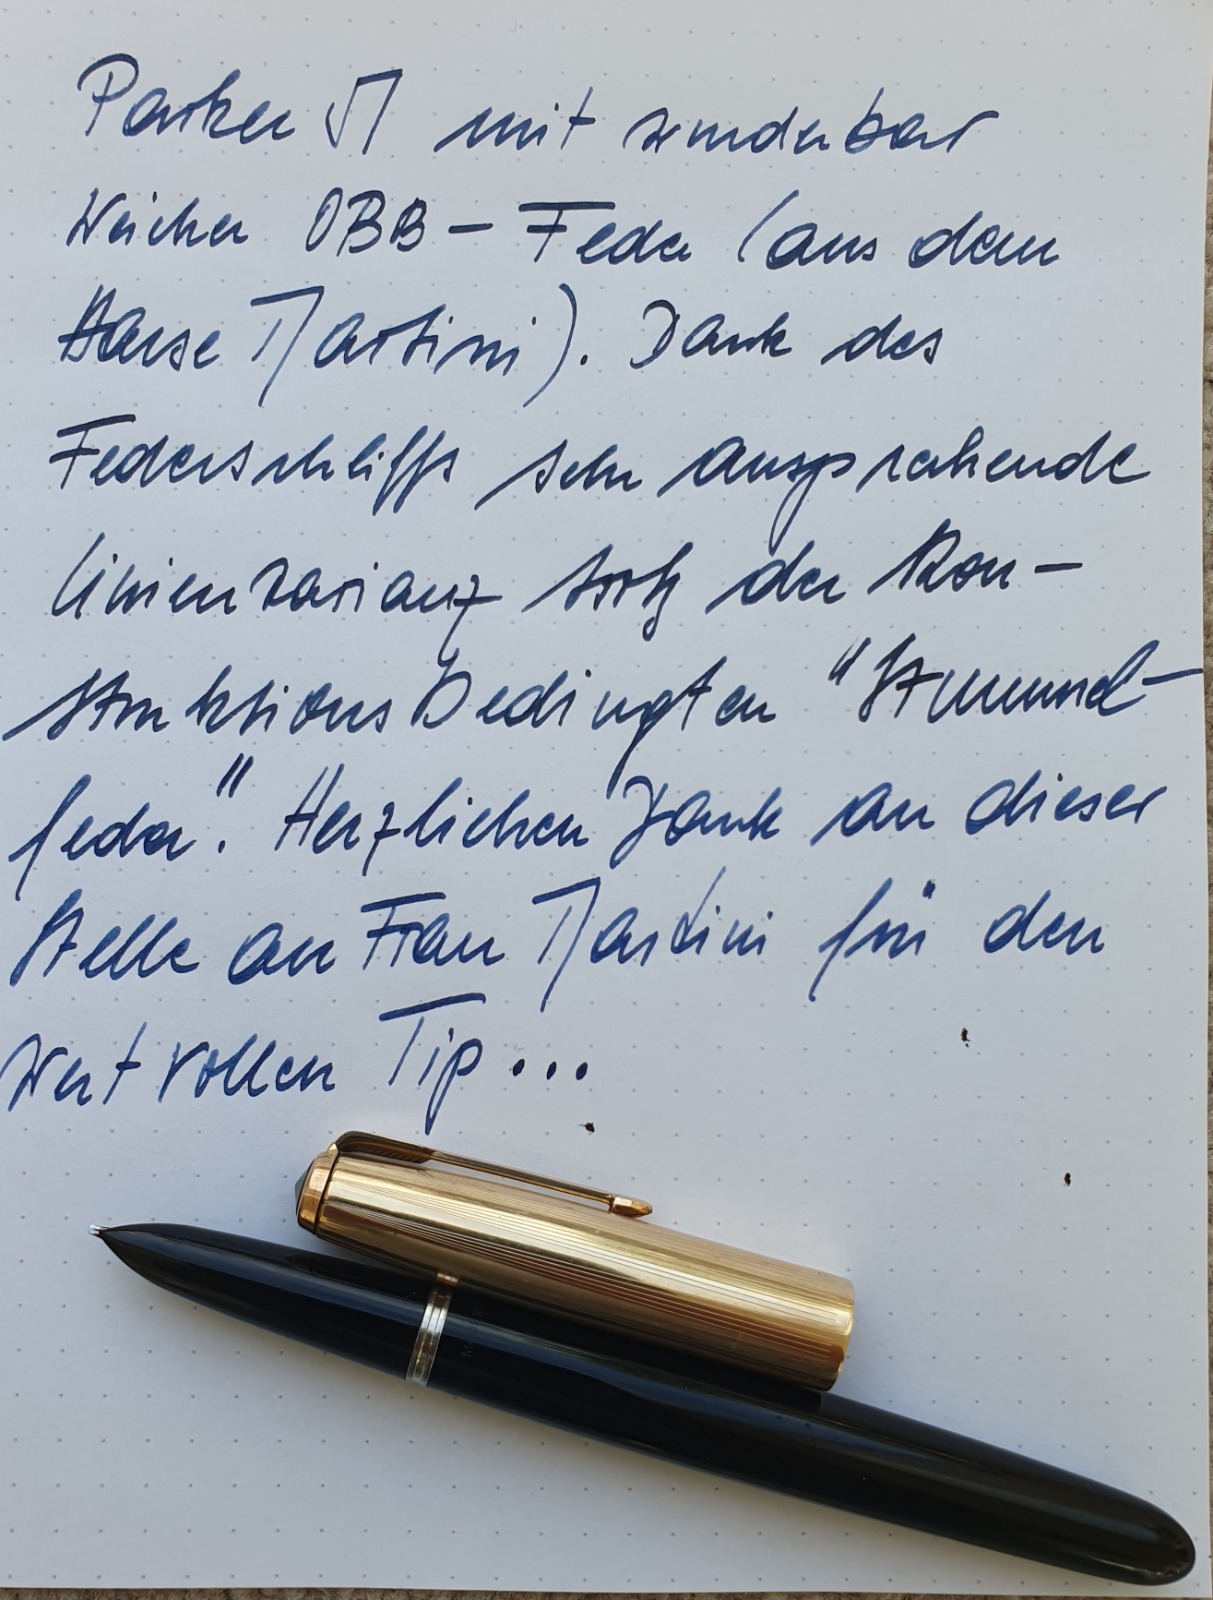 Parker 51 mit wunderbar
weicher OBB - Feder (aus dem
Hause Martini). Dank des
Federschliffs sehr ansprechende
Linienvarianz trotz der kon-
struktionsbedingten "Stummel-
feder." Herzlichen Dank an dieser
Stelle an Frau Martini für den
wertvollen Tip...